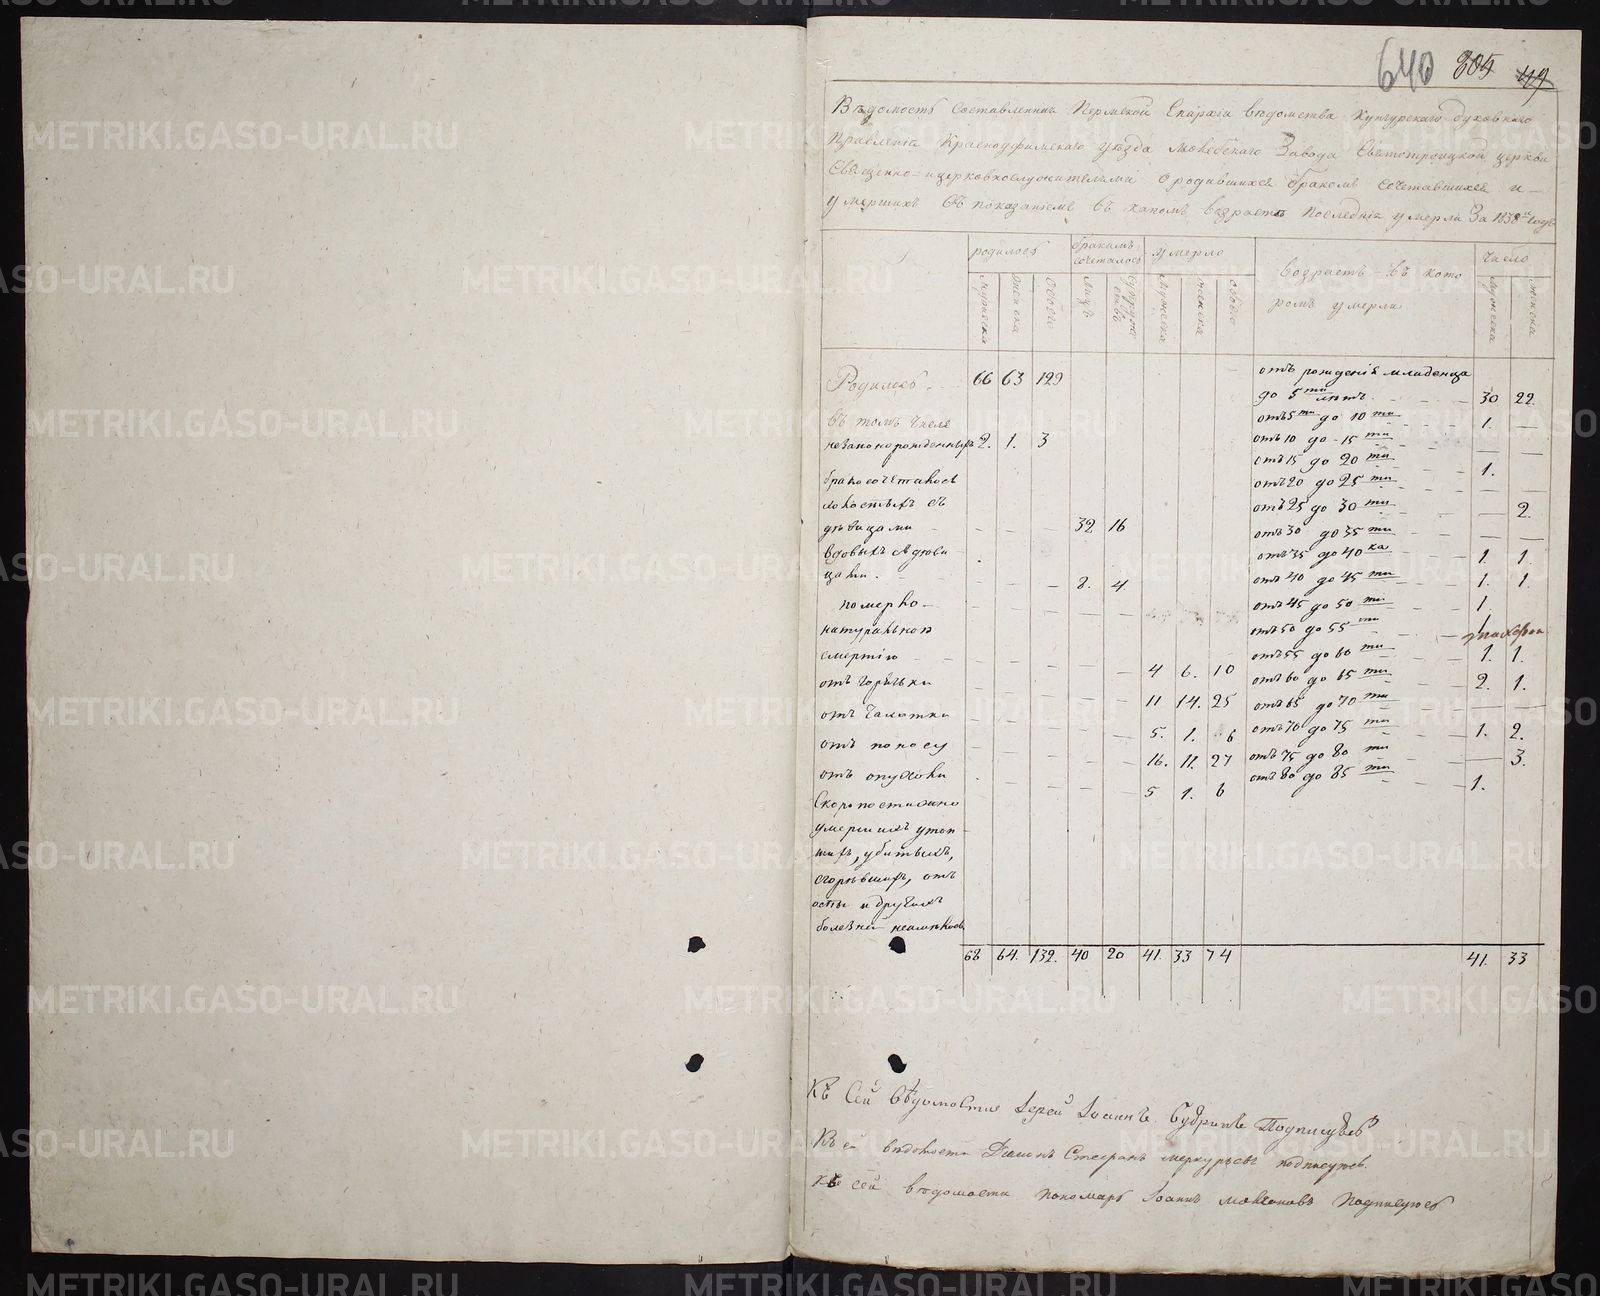 640 805 49
Вѣдомость Составленная Пермской Епархіи вѣдомства Кунгурскаго духовнаго
Правленія Красноуфимскаго уѣзда завода Святотроицкой церкви
Священно-и церковнослужителями о родившихся бракомъ сочетавшихся и
умершихъ съ показаніемъ въ какомъ возрастѣ послѣдніе умерли За 1838й годъ
родилось бракомъ сочеталось умерло возрастъ въ кото ромъ умерли число
мужеска женска обоего лицъ супружествъ мужеска женска обоего мужеска женска
Родилось 66 63 129
въ томъ числѣ
незаконорожденныхъ 2. 1. 3
бракосочеталось
холостыхъ съ
дѣвицами 32 16
вдовыхъ съ дѣви
цами. 8. 4
померло
натуральною
смертію 4 6. 10
отъ горячки 11 14. 25
отъ чахотки 5. 1. 6
отъ поносу 16. 11. 27
отъ опухоли 5 1. 6
Скоропостижно
умершихъ утоп
шихъ, убитыхъ,
сгорѣвшихъ, отъ
оспы и другихъ
болезней неимѣлось
отъ рожденія младенца
до 5ти лѣтъ. 30 22
отъ 5ти до 10ти 1. —
отъ 10 до 15ти — —
отъ 15 до 20ти 1.
отъ 20 до 25ти — —
отъ 25 до 30ти — 2.
отъ 30 до 35ти — —
отъ 35 до 40ка 1. 1.
отъ 40 до 45ти 1. 1.
отъ 45 до 50ти 1.
отъ 50 до 55ти 1
отъ 55 до 60ти 1. 1.
отъ 60 до 65ти 2. 1.
отъ 65 до 70ти — —
отъ 70 до 75ти 1. 2.
отъ 75 до 80ти — 3.
отъ 80 до 85ти 1.
68 64. 132. 40 20 41. 33 74 41. 33
Къ Сей вѣдомости Іерей Іоаннъ Будринъ Подписуюсь
Къ сей вѣдомости Діаконъ Стефанъ Меркурьевъ подписуюсь.
Къ сей вѣдомости пономарь Іоаннъ Подписуюсь
METRIKI.GASO-URAL.RU